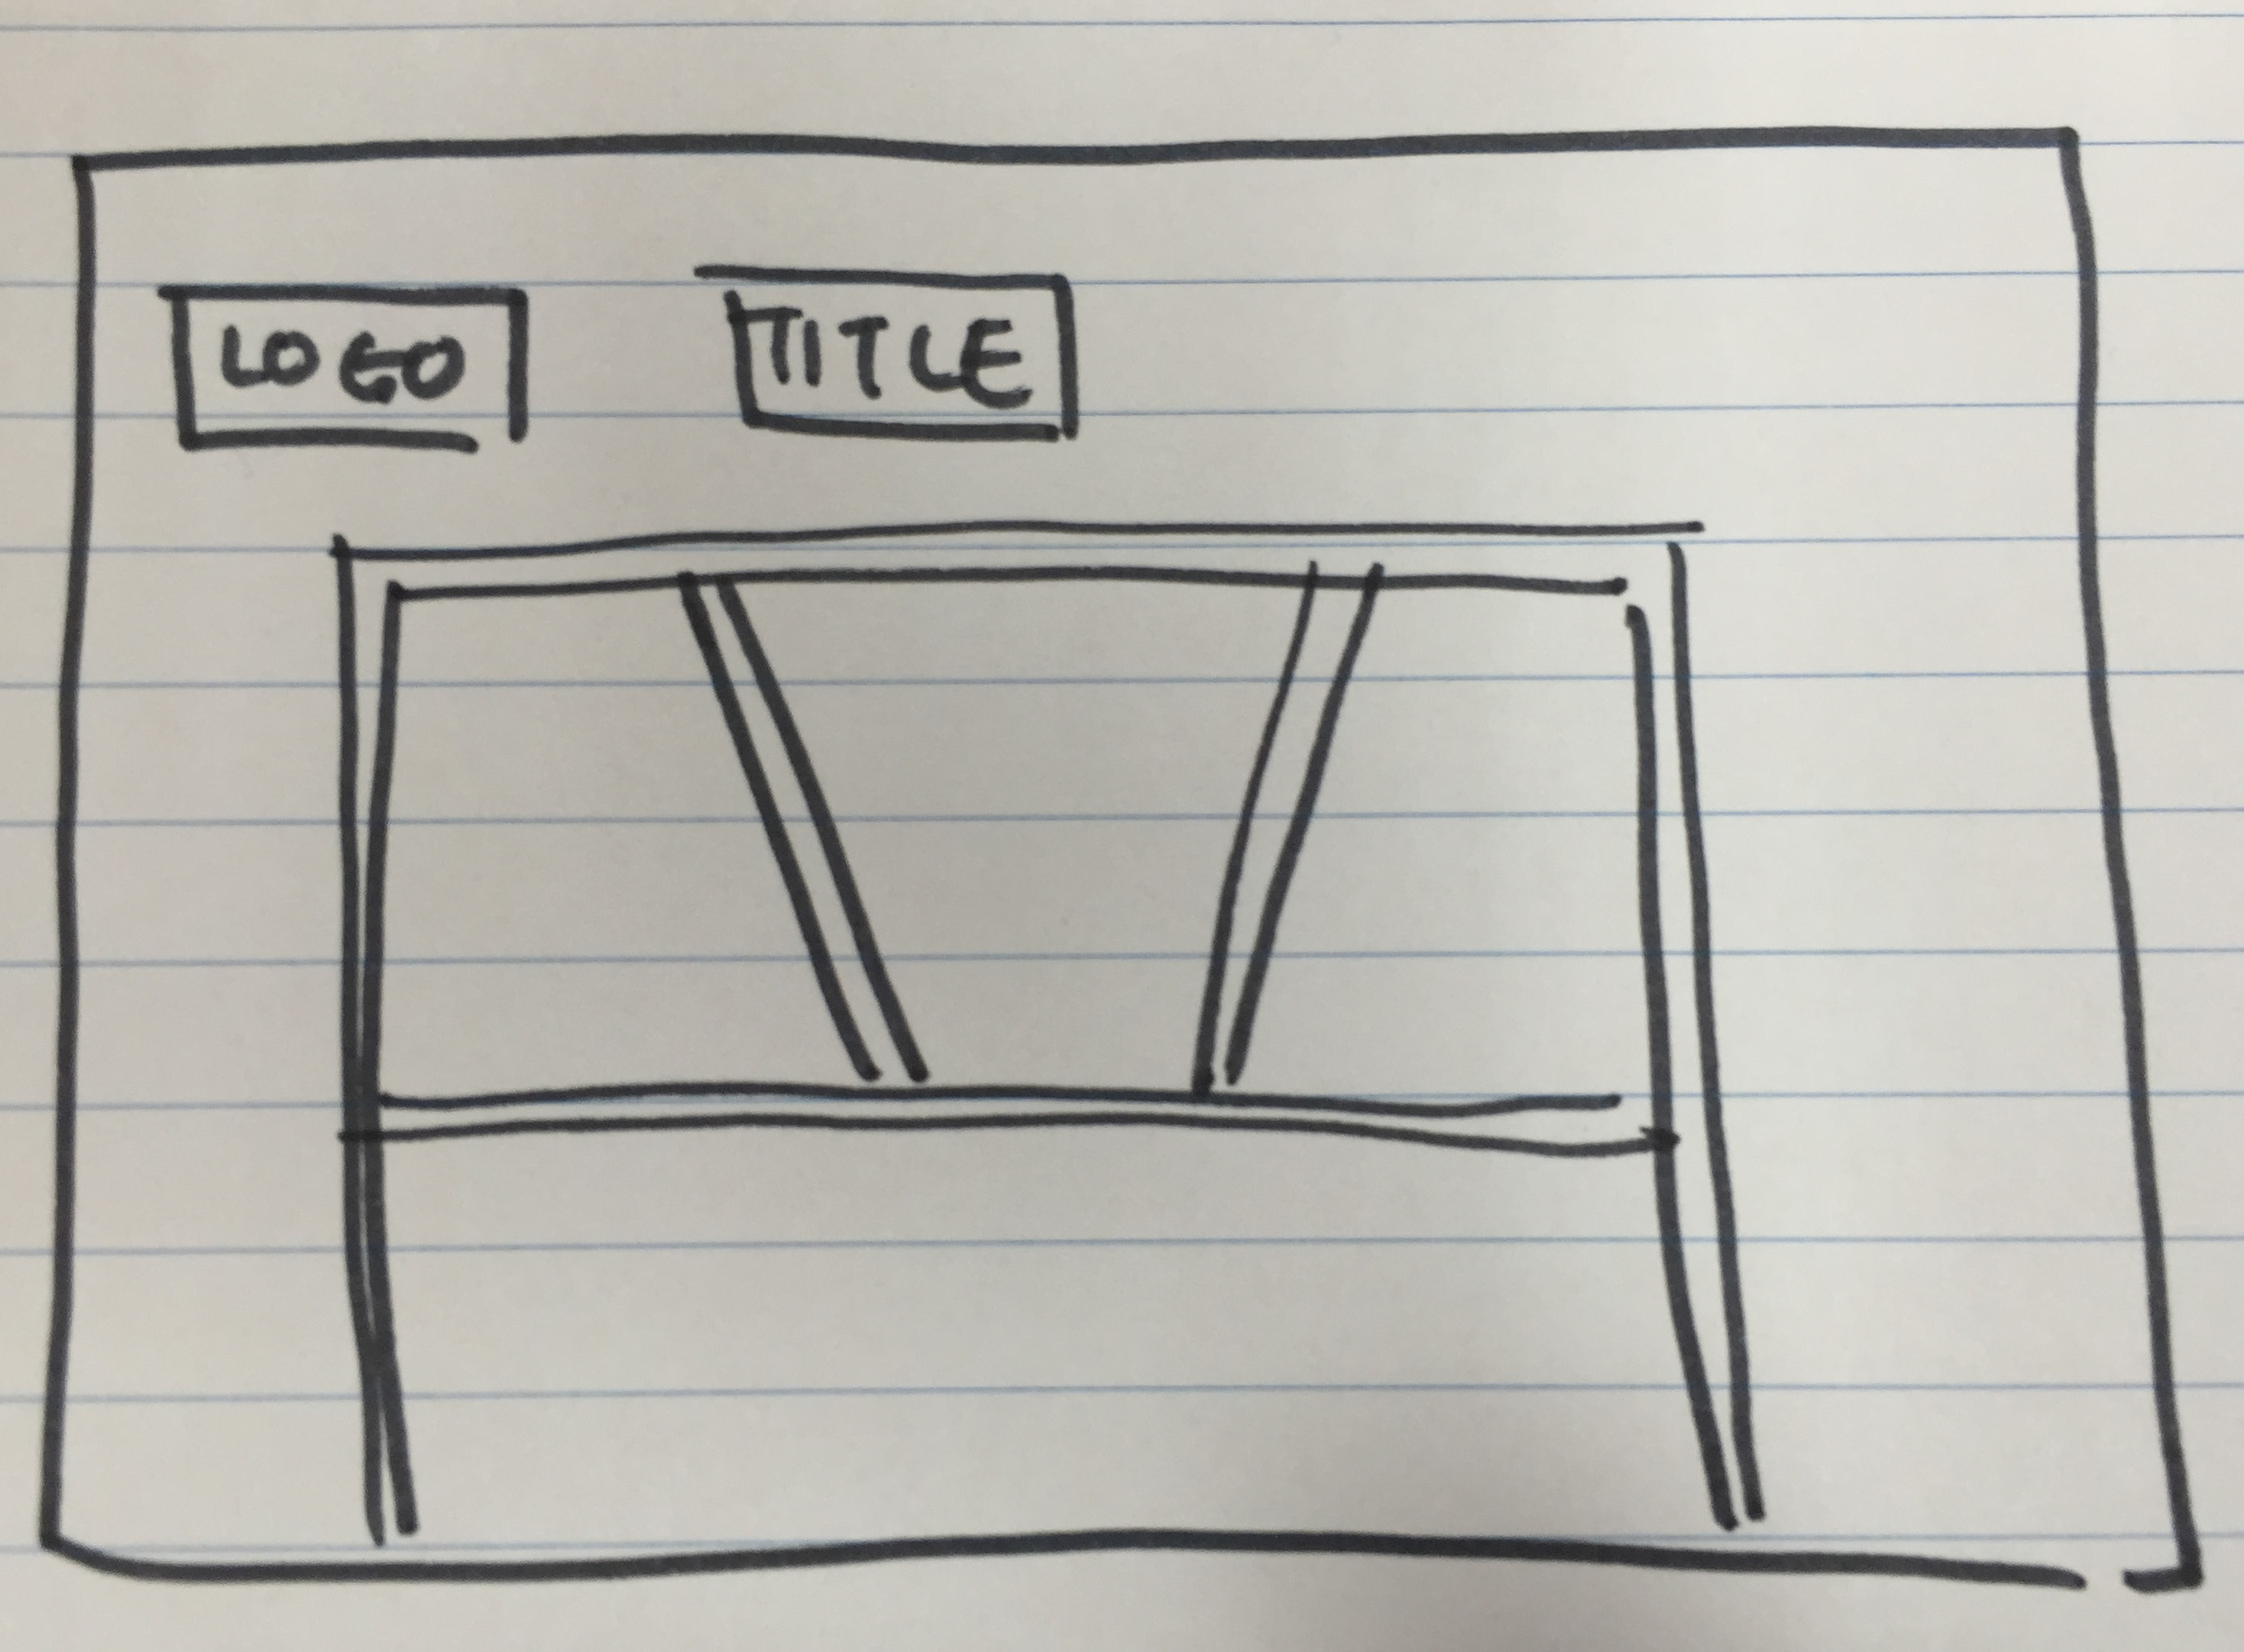 LOGO TITLE